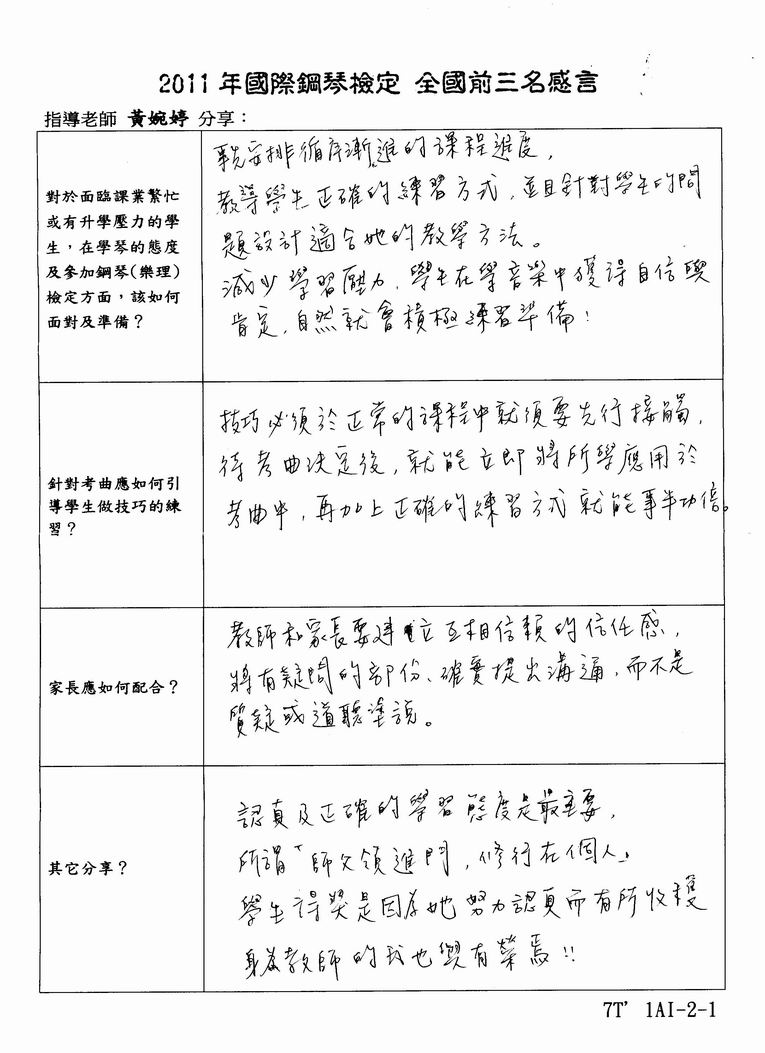 2011 年國際鋼琴檢定 全國前三名感言
指導老師 黃婉婷 分享：
對於面臨課業繁忙
或有升學壓力的學
生，在學琴的態度
及參加鋼琴(樂理)
檢定方面，該如何
面對及準備？
事先安排循序漸進的課程進度，
教導學生正確的練習方式，並且針對學生的問
題設計適合她的教學方法。
減少學習壓力，學生在學音樂中獲得自信與
肯定，自然就會積極練習準備！
針對考曲應如何引
導學生做技巧的練
習？
技巧必須於正常的課程中就須要先行接觸，
待考曲決定後，就能立即將所學應用於
考曲中，再加上正確的練習方式就能事半功倍。
家長應如何配合？
教師和家長要建立互相信賴的信任感，
將有疑問的部份、確實提出溝通，而不是
質疑或道聽塗說。
其它分享？
認真及正確的學習態度是最主要，
所謂「師父領進門，修行在個人」
學生得獎是因為她努力認真而有所收穫
身為教師的我也與有榮焉!!
7T' 1AI-2-1